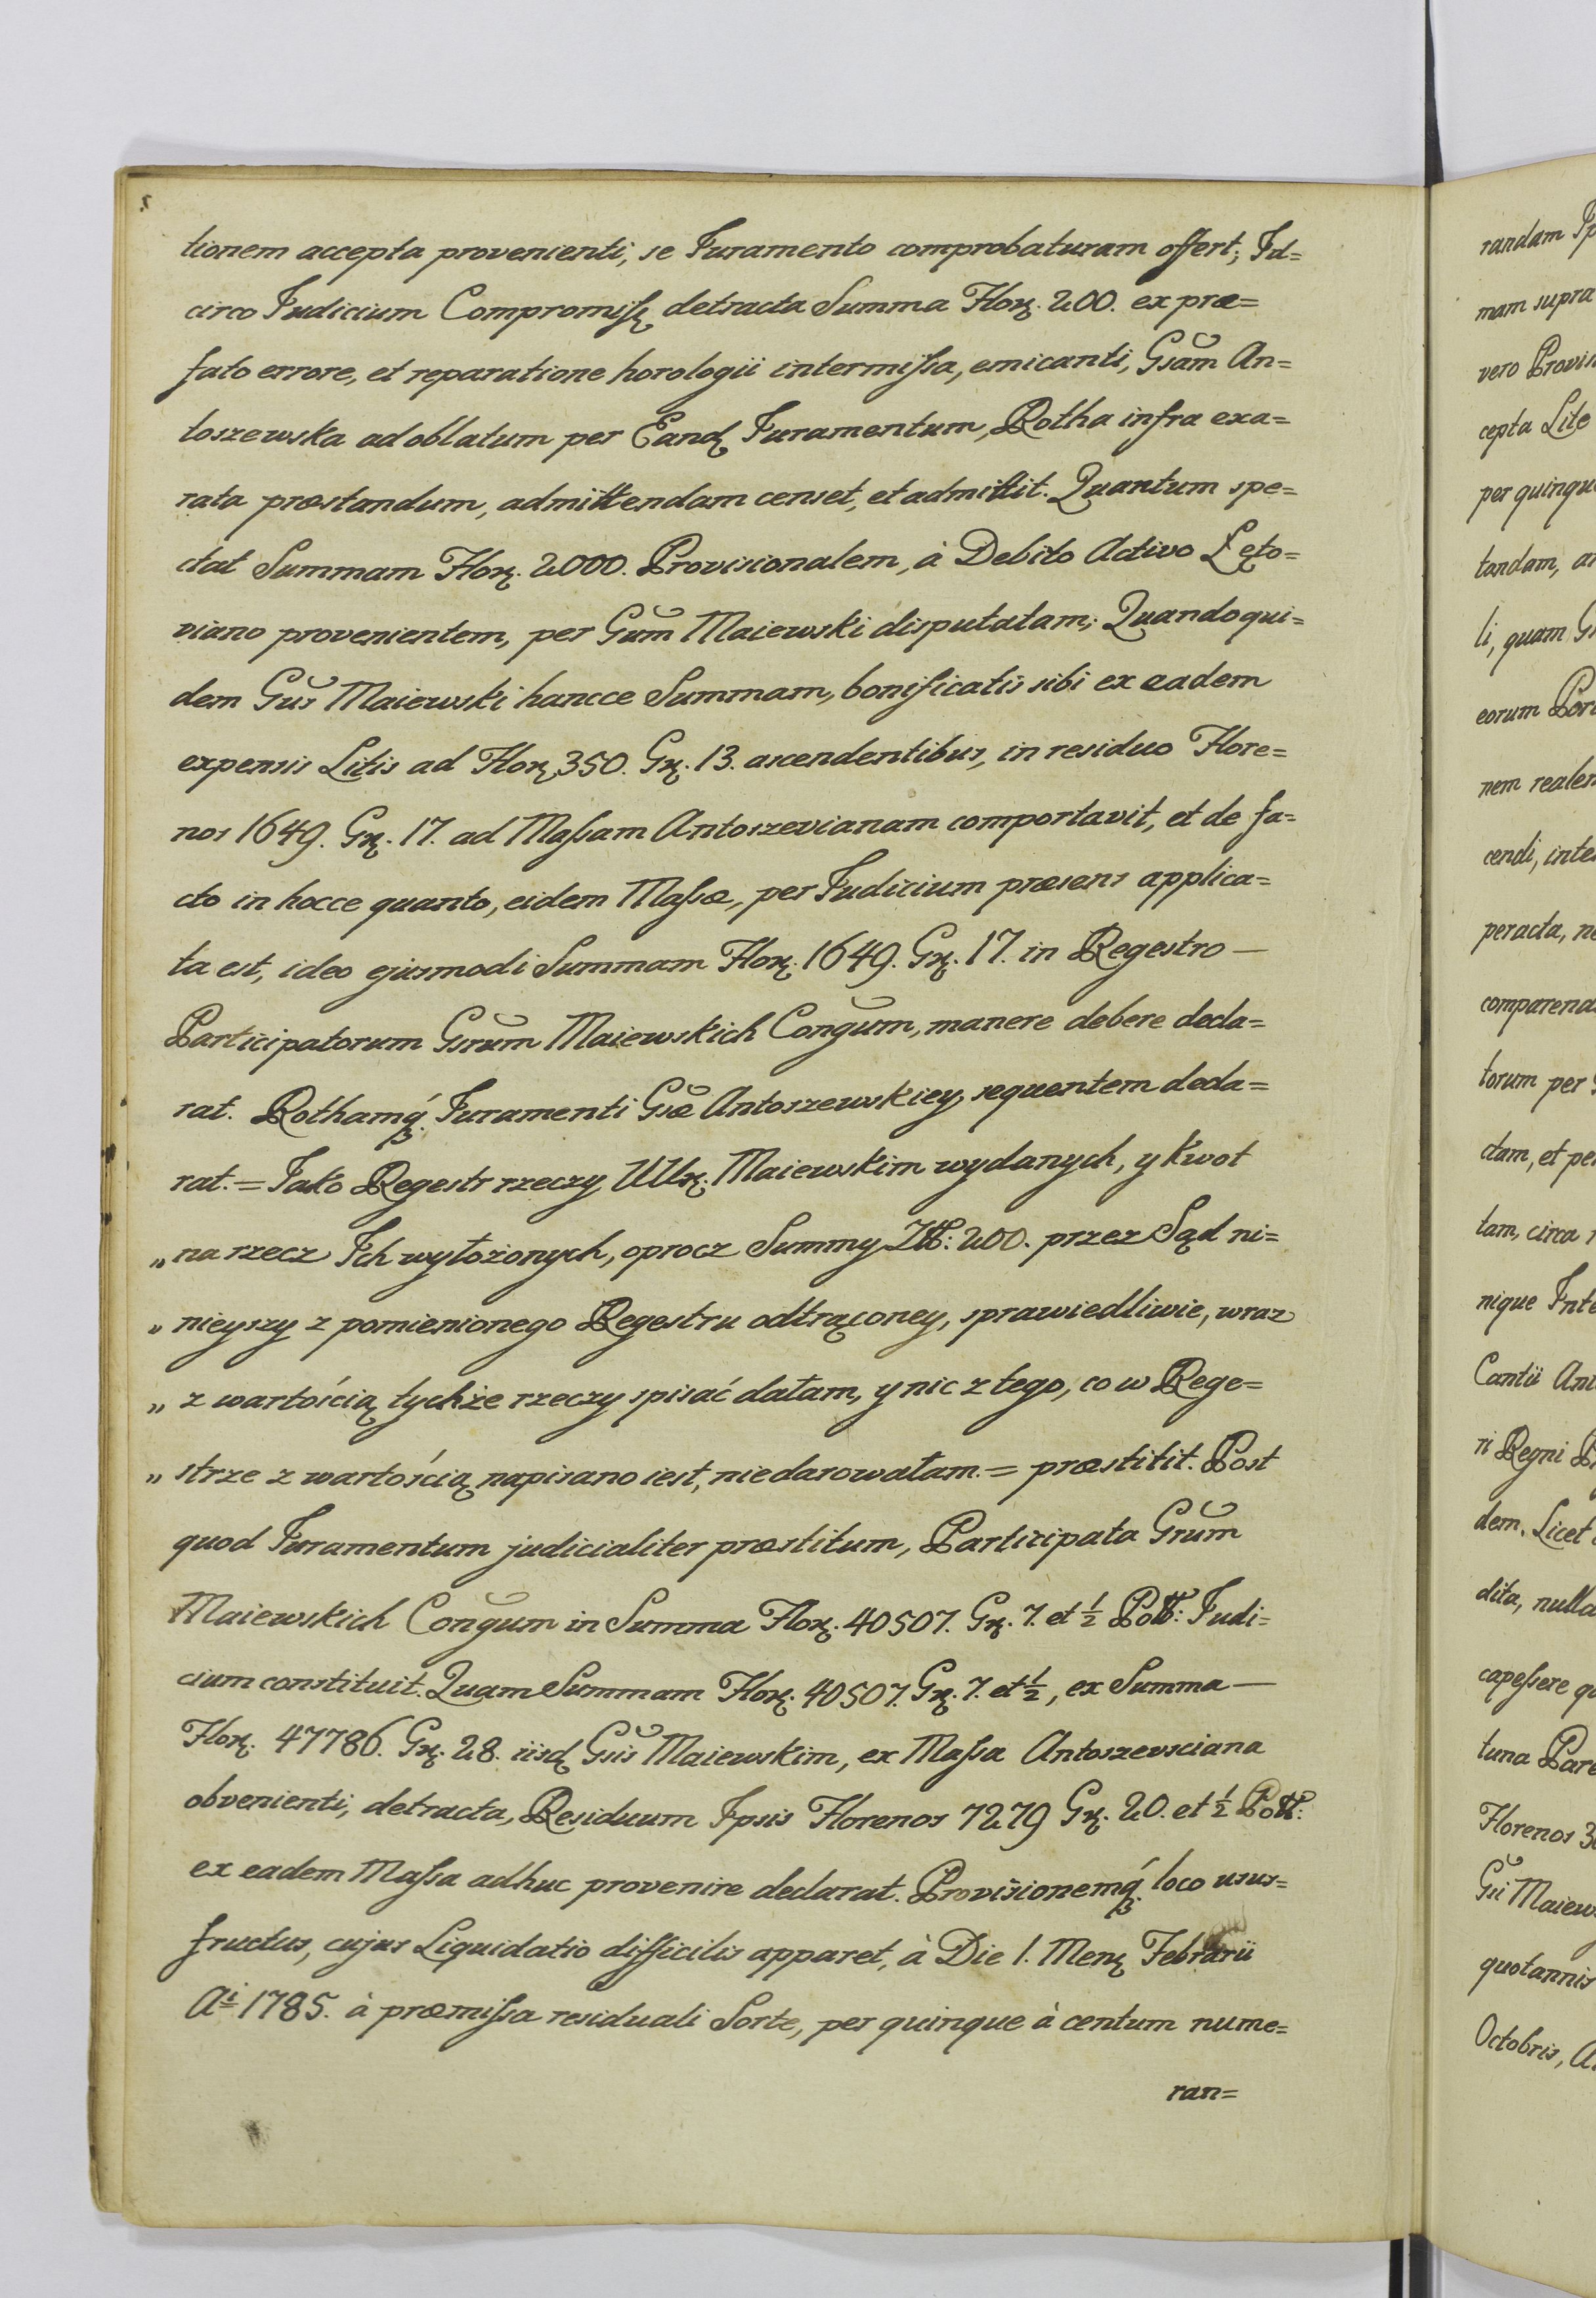 tionem accepta provenienti, se Juramento comprobaturam offert; Id=
circo Judicium Compromiss: detracta Summa Flor: 200. ex præ=
fato errore, et reparatione horologii intermissa, emicanti, Gsam An=
toszewska ad oblatum per Eand: Juramentum, Rotha infra exa=
rata præstandum, admittendam censet, et admittit. Quantum spe=
ctat Summam Flor: 2000. Provisionalem, à Debito Activo Łęto=
viano provenientem, per Gum Maiewski disputatam; Quandoqui=
dem Gus Maiewski hancce Summam, bonificatis sibi ex eadem
expensis Litis ad Flor: 350. Gr: 13. ascendentibus, in residuo Flore=
nos 1649. Gr: 17. ad Massam Antoszevianam comportavit, et de fa=
cto in hocce quanto, eidem Massæ, per Judicium præsens applica=
ta est, ideo ejusmodi Summam Flor: 1649. Gr: 17. in Regestro —
Participatorum Gsrum Maiewskich Congum, manere debere decla=
rat. Rothamq́ꝫ Juramenti Gsæ Antoszewskiey, sequentem decla=
rat. = Jako Regestr rzeczy UUr: Maiewskim wydanych, y Kwot
„ na rzecz Ich wyłożonych, oprocz Summy Złł: 200. przez Sąd ni=
„ nieyszy z pomienionego Regestru odtrąconey, sprawiedliwie, wraz
„ z wartością tychże rzeczy spisać dałam, y nic z tego, co w Rege=
„ strze z wartością napisano iest, niedarowałam. = præstitit. Post
quod Juramentum judicialiter præstitum, Participata Grum
Maiewskich Congum in Summa Flor: 40507. Gr: 7. et ½ Poll: Judi=
cium constituit. Quam Summam Flor: 40507. Gr: 7. et ½, ex Summa —
Flor: 47786. Gr: 28. iisd: Gsis Maiewskim, ex Massa Antoszevsciana
obvenienti, detracta, Residuum Ipsis Florenos 7279 Gr: 20. et ½ Poll:
ex eadem Massa adhuc provenire declarat. Provisionemq́ꝫ loco usus=
fructus, cujus Liquidatio difficilis apparet, à Die 1. Mens: Febrarii
Ai 1785. à præmissa residuali Sorte, per quinque à centum nume=
ran=
randam
mam supra
vero
cepta Lite
tandam,
li, quam
eorum
cendi,
peracta,
torum per
ctam, et
tam, circa
nique
ri Regni
dem. Licet
dita, nulla
capessere
tuna
Florenos
quotannis
Octobris,